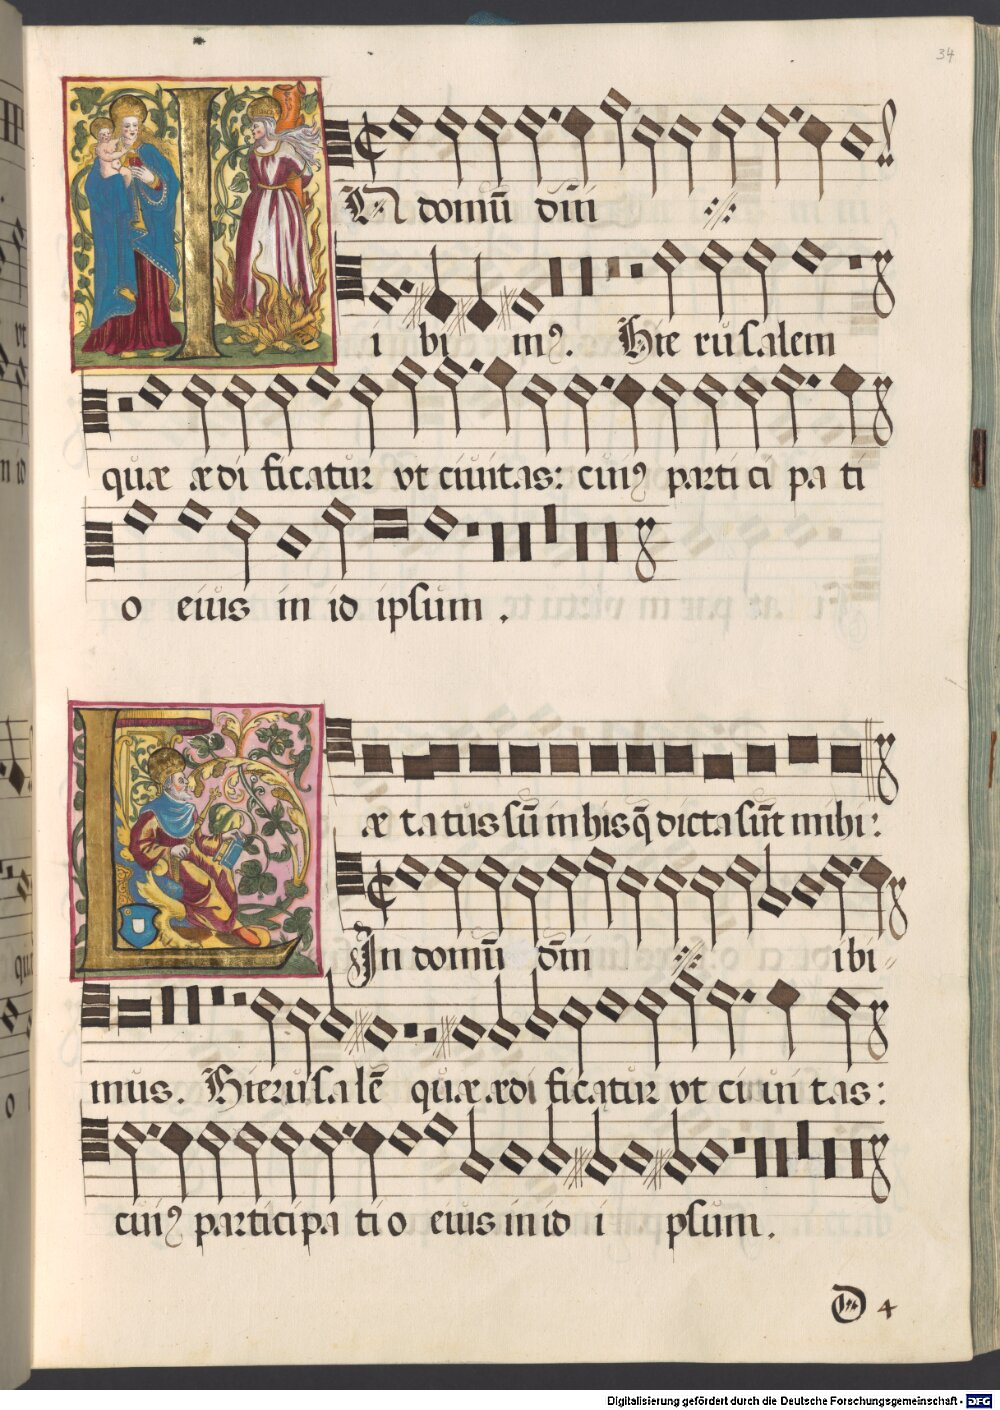 34
IN domū dn̄i
ibimꝰ. Hierusalem
quæ ædificatur vt ciuitas: cuiꝰ participati
o eius in id ipsum.
Lætatus sū in his q̄ dicta sūt mihi:
In domū dn̄i ibi-
mus. Hierusalē quæ ædificatur vt ciuitas:
cuiꝰ participatio eius in id ipsum.
D 4
Digitalisierung gefördert durch die Deutsche Forschungsgemeinschaft - DFG